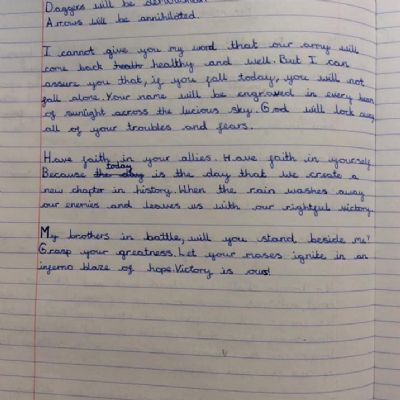 Daggers will be
Arrows will be annihilated.
I cannot give you my word that our army will
come back health healthy and well. But I can
assure you that, if you fall today, you will not
fall alone. Your name will be engraved in every beam
of sunlight across the lucious sky. God will lock away
all of your troubles and fears.
Have faith in your allies. Have faith in yourself
Because the day today is the day that we create a
new chapter in history. When the rain washes away
our enemies and leaves us with our rightful victory.
My brothers in battle, will you stand beside me?
Grasp your greatness. Let your roses ignite in an
inferno blaze of hope. Victory is ours!